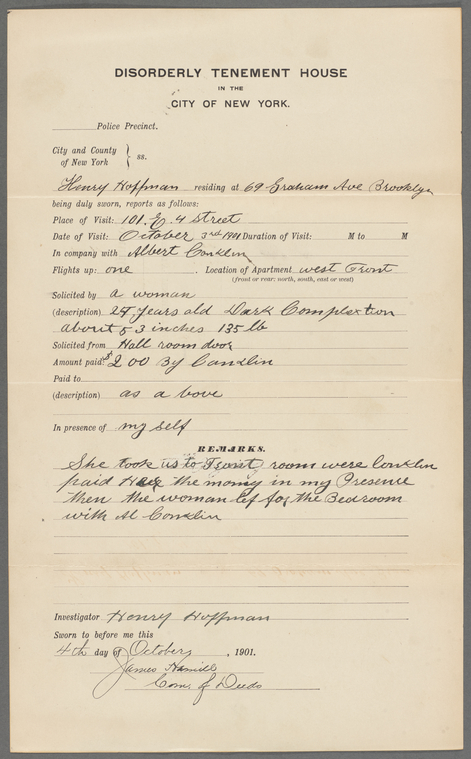 DISORDERLY TENEMENT HOUSE
IN THE
CITY OF NEW YORK.
Police Precinct.
City and County
of New York } ss.
Henry Hoffman residing at 69 Graham Ave Brooklyn
being duly sworn, reports as follows:
Place of Visit: 101. E. 4 Street
Date of Visit: October 3rd 1901 Duration of Visit: M to M
In company with Albert Conklin
Flights up: one. Location of Apartment west Front
(front or rear: north, south, east or west)
Solicited by a woman
(description) 27 years old Dark Complextion
about 5 3 inches 135 lb
Solicited from Hall room door
Amount paid: $2 00 By Conklin
Paid to
(description) as a bove
In presence of my self
REMARKS.
She took us to Front room were Conklin
paid Her the mony in my Presence
then the woman lef for the Bedroom
with Al Conklin
Investigator Henry Hoffman
Sworn to before me this
4th day of October, 1901.
James Hamill
Com. of Deeds